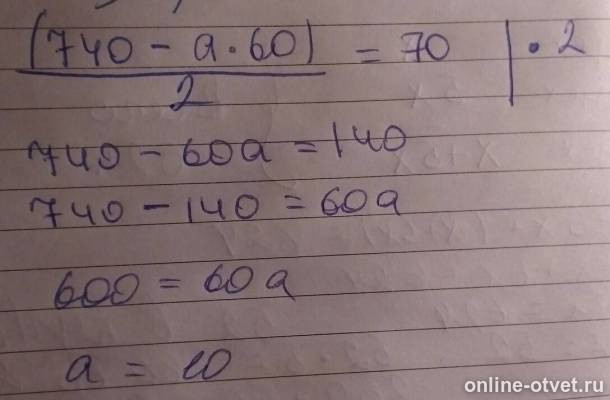 (740 - a·60) / 2 = 70 | · 2
740 - 60a = 140
740 - 140 = 60a
600 = 60a
a = 10
online-otvet.ru